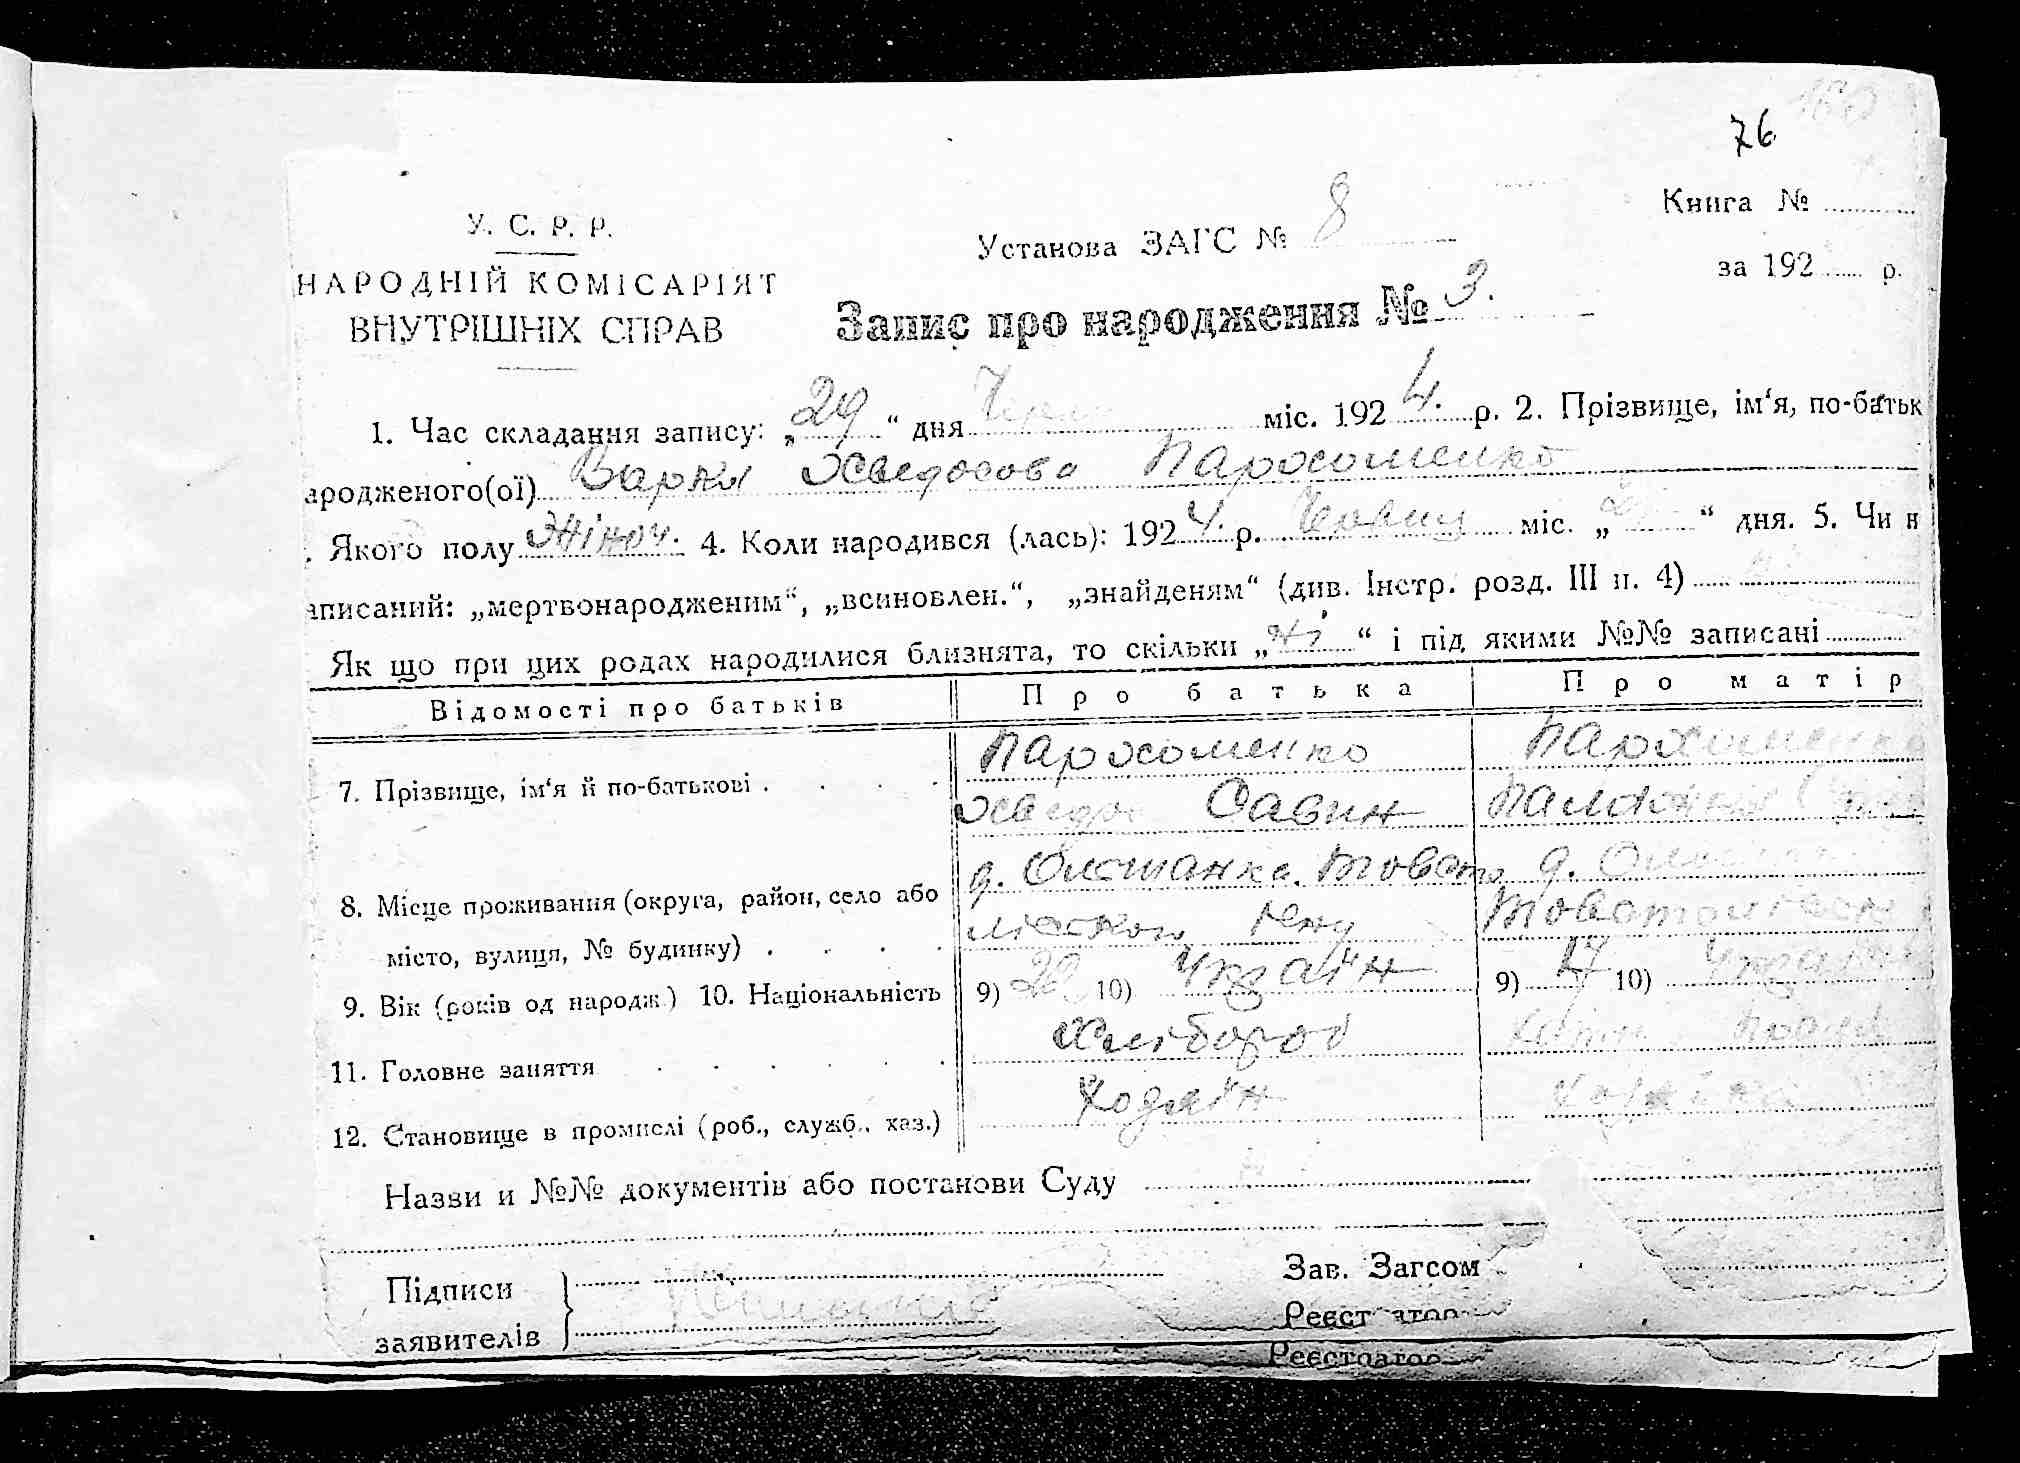 76
Книга № ............
У. С. Р. Р.
Установа ЗАГС № 8
за 192 ...... р.
НАРОДНІЙ КОМІСАРІЯТ
ВНУТРІШНІХ СПРАВ
Запис про народження № 3.
1. Час складання запису: „29“ дня міс. 1924. р. 2. Прізвище, ім‘я, по-батьк
ародженого(ої) Варки Хведосова Пархоменко
. Якого полу Жіноч. 4. Коли народився (лась): 1924. р. міс. „ “ дня. 5. Чи н
аписаний: „мертвонародженим“, „всиновлен.“, „знайденям“ (див. Інстр. розд. III п. 4)
Як що при цих родах народилися близнята, то скільки „ні“ і під якими №№ записані
Відомості про батьків Про батька Про матір
Пархоменко Пархоменко
7. Прізвище, ім‘я й по-батькові . . . .
Савин
д. Олшанка
8. Місце проживання (округа, район, село або
місто, вулиця, № будинку) . . . .
9. Вік (років од народж.) 10. Національність 9) 10) Украін 9) 17 10)
Хлібороб
11. Головне заняття . . . . . .
Ходяін
12. Становище в промислі (роб., служб., хаз.)
Назви и №№ документів або постанови Суду
Підписи
Зав. Загсом
заявителів
Реєстратор
Реєстратор